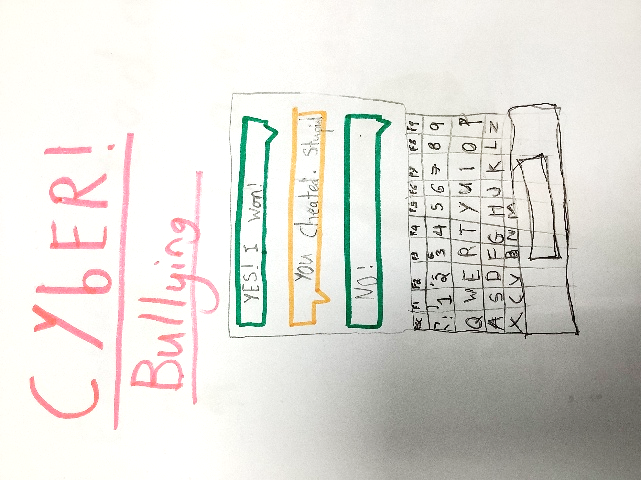 CYbER!
Bullying
YES! I won!
You Cheated. Stupid
No!
F1 F2 F3 F4 F5 F6 F7 F8 F9
1 2 3 4 5 6 7 8 9
Q W E R T Y U I O P
A S D F G H J K L Z
X C V B N M